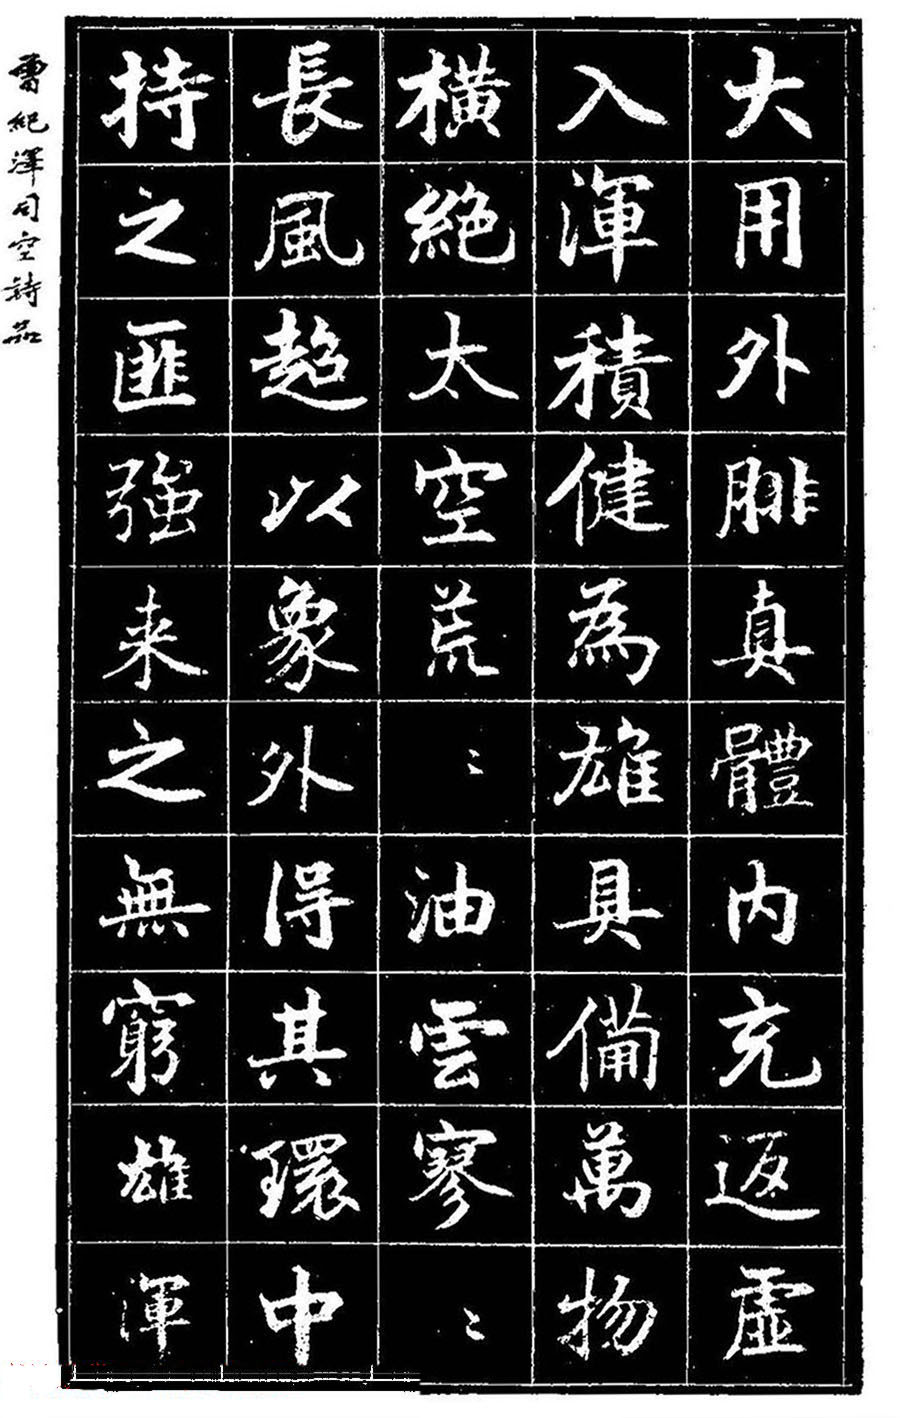 大用外腓真體内充返虛
入渾積健為雄具備萬物
橫絕太空荒〻油雲寥〻
長風超以象外得其環中
持之匪強来之無窮雄渾
曾紀澤司空詩品